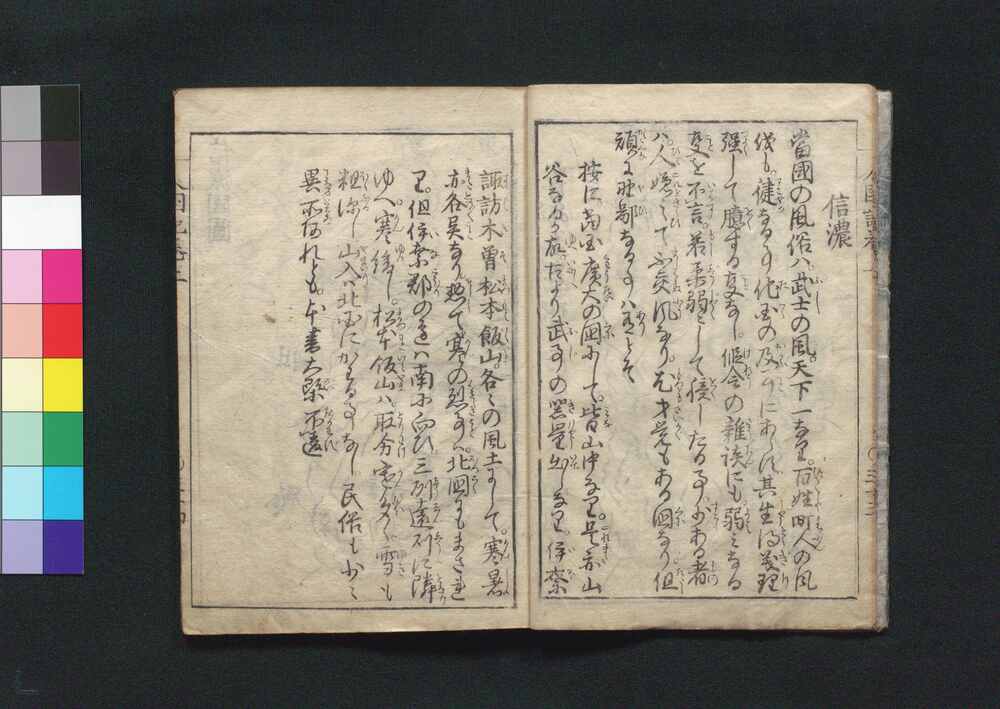 信濃
當國の風俗ハ武士の風天下一なり。百姓町人の風
俗も。健なる事他国の及ぶにあらず其生得義理
强して臆する事なし。偶会の雑談にも弱ミなる
事を不言。若柔弱にして侫したる事少ある者
ハ。人嫌ひて不交風なり。尤才覚もある國なり但
頑に野鄙なる事ハ有とぞ
按に當国廣大の國にして。皆山中なり。是亦山
谷なるが故。だより武事の器量出しなり。伊奈
諏訪木曽松本飯山。各々の風土にして。寒暑
亦各異なり惣て寒きの烈事ハ。北国にもまされ
り。但伊奈郡の邊ハ南に向ひ三州遠州に隣
ゆへ。寒緩し。松本飯山ハ。取分寒多く。雪も
粗深し山入ハ北国にかはる事なし民俗も少く
異而有れども。本書大槩不違